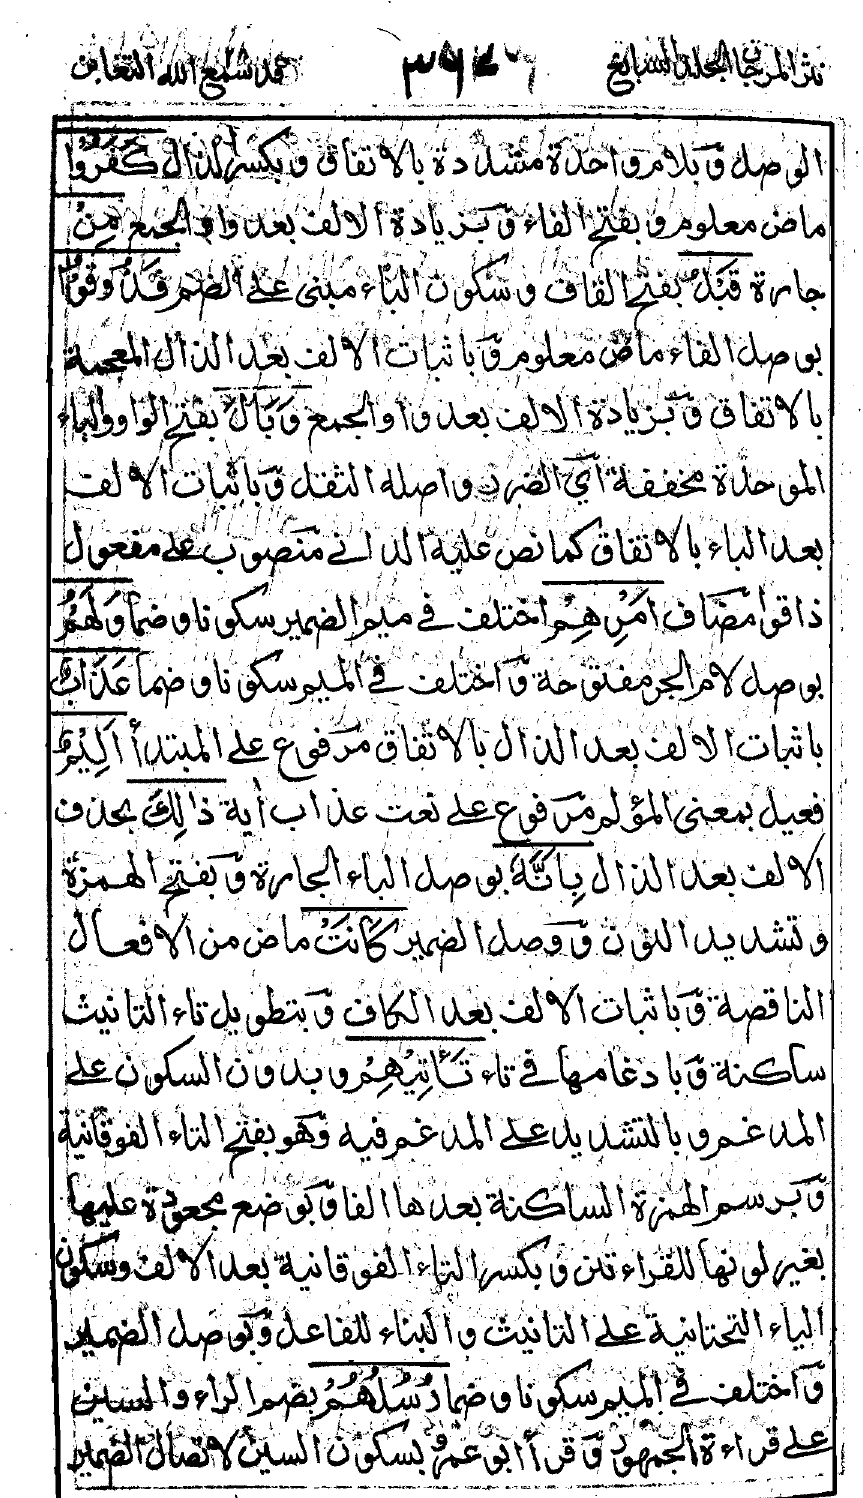 نثر المرجان المجلد السابع ٣٩٤٦ قد سمع الله التغابن
الوصل وبلام واحدة مشددة بالاتفاق وبكسر الذال كَفَرُوْا
ماض معلوم وبفتح الفاء وبزيادة الالف بعد واو الجمع مِنْ
جارة قَبْلُ بفتح القاف وسكون الباء مبنى على الضم فَذَاقُوْا
بوصل الفاء ماض معلوم وباثبات الالف بعد الذال المعجمة
بالاتفاق وبزيادة الالف بعد واو الجمع وَبَالَ بفتح الواو والباء
الموحدة مخففة اي الضرر واصله الثقل وباثبات الالف
بعد الباء بالاتفاق كما نص عليه الداني منصوب على مفعول
ذاقوا مضاف اَمْرِهِمْ اختلف في ميم الضمير سكونا وضما وَلَهُمْ
بوصل لام الجر مفتوحة واختلف في الميم سكونا وضما عَذَابٌ
باثبات الالف بعد الذال بالاتفاق مرفوع على المبتدأ اَلِيْمٌ
فعيل بمعنى المؤلم مرفوع على نعت عذاب أية ذٰلِكَ بحذف
الالف بعد الذال بِاَنَّهٗ بوصل الباء الجارة وبفتح الهمزة
وتشديد النون ووصل الضمير كَانَتْ ماض من الافعال
الناقصة وباثبات الالف بعد الكاف وبتطويل تاء التانيث
ساكنة وبادغامها في تاء تَأْتِيْهِمْ وبدون السكون على
المدغم وبالتشديد على المدغم فيه وهو بفتح التاء الفوقانية
وبرسم الهمزة الساكنة بعدها الفا وبوضع مجعودة عليها
بغير لونها للقراءتين وبكسر التاء الفوقانية بعد الالف وسكون
الياء التحتانية على التانيث والبناء للفاعل وبوصل الضمير
واختلف في الميم سكونا وضما رُسُلُهُمْ بضم الراء والسين
على قراءة الجمهور وقرأ ابو عمرو بسكون السين لاتصال الضمير